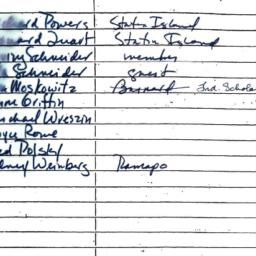 rd Powers Staten Island
ard Quart Staten Island
Schneider member
Schneider guest
Moskowitz Barnard Ind. Schola
Griffin
ichael Wreszin
Rowe
ed Polsky
dney Weinberg Ramapo